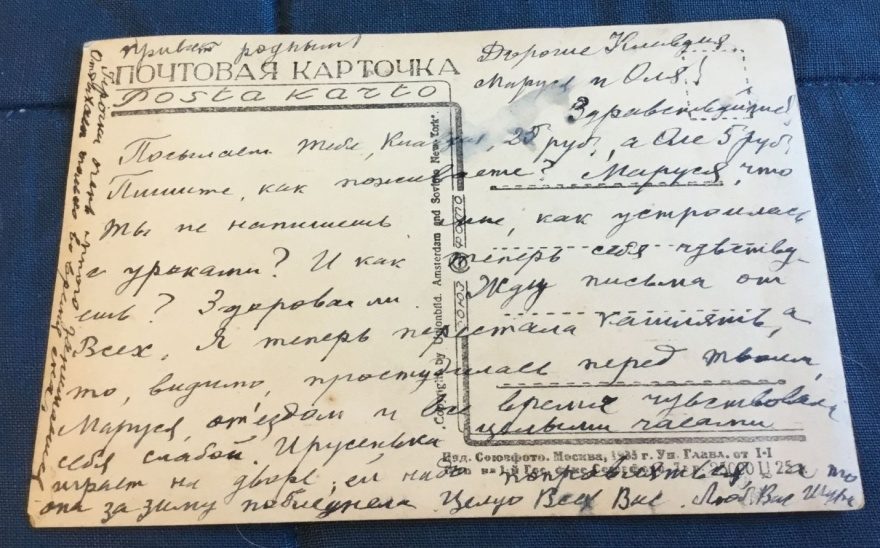 Привет родным!
ПОЧТОВАЯ КАРТОЧКА
Poŝta karto
Дорогие Клавдия,
Маруся и Оля!
Здравствуйте!
Посылаем тебе, Клавдия, 25 руб, а Оле 5 руб.
Пишите, как поживаете? Маруся, что
ты не напишешь мне, как устроилась
с уроками? И как теперь себя чувству-
ешь? Здорова ли. Жду письма от
Всех. Я теперь перестала кашлять, а
то, видимо, простудилась перед твоим,
Маруся, отъездом и все время чувствовала
себя слабой. Ирусенька целыми часами
играет на дворе, ей надо поправляться, а то
она за зиму побледнела. Целую Всех Вас. Люб. Вас Шура
очень много занимаемся
Отдыхаем только во время сна.
Copyright by Unionbild. Amsterdam and Sovfoto New York.
СОЮЗ ФОТО
Изд. Союзфото. Москва, 1935 г. Уп. Главл. от 1-I